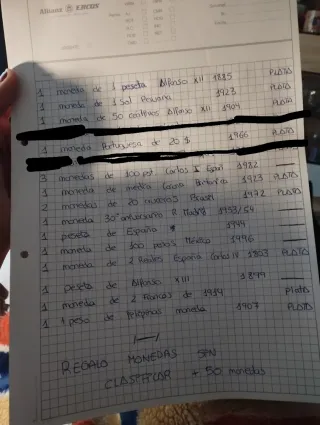 Allianz ERCUS
1 moneda de 1 peseta Alfonso XII 1885 PLATA
1 moneda de 1 Sol Peruana 1923 PLATA
1 moneda de 50 céntimos Alfonso XII 1904 PLATA
1 moneda Portuguesa de 20 $ 1966 PLATA
3 monedas de 100 pst Carlos I Españ 1982 —
1 moneda de media Corona Britanica 1923 PLATA
2 monedas de 20 cruceiros Brasil 1972 PLATA
1 moneda 30º aniversario R Madrid 1953/54 —
1 peseta de España 1944 —
1 moneda de 100 pesos Mexico 1996 —
1 moneda de 2 Reales España Carlos IV 1803 PLATA
1 peseta de Alfonso XIII 1899 —
1 moneda de 2 Francos de 1914 PLATA
1 1 peso de Filipinas moneda 1907 PLATA
REGALO MONEDAS SIN
CLASIFICAR + 50 monedas